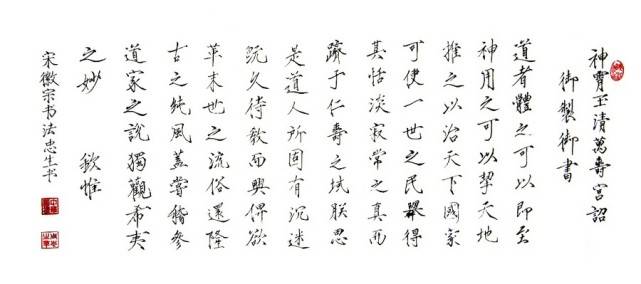 神霄玉清萬壽宮詔
御製御書
道者體之可以即至
神用之可以挈天地
推之以治天下國家
可使一世之民舉得
其恬淡寂常之真而
躋于仁壽之域朕思
是道人所固有沉迷
既久待教而興俾欲
革末世之流俗還隆
古之純風蓋嘗稽參
道家之說獨觀希夷
之妙 欽惟
宋徽宗书法忠生书